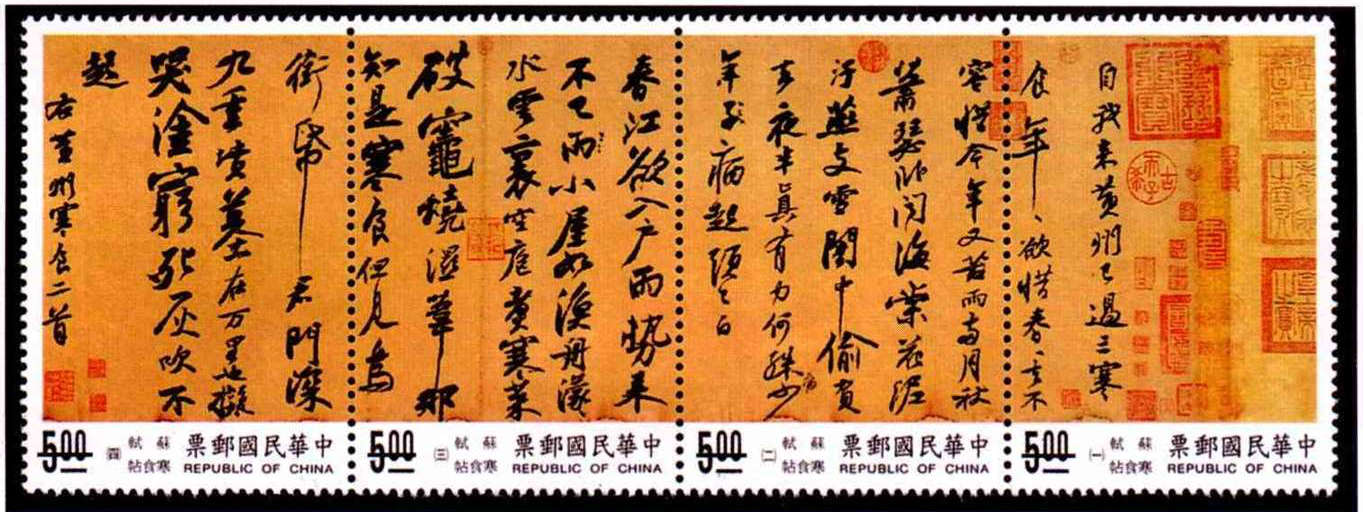 自我来黄州已過三寒
食年〻欲惜春〻去不
容惜今年又苦雨兩月秋
蕭瑟卧聞海棠花泥
汙燕支雪闇中偷負
去夜半真有力何殊少
年子病起頭已白
春江欲入戶雨勢来
不已雨小屋如漁舟濛〻
水雲裏空庖煮寒菜
破竈燒濕葦那
知是寒食但見烏
銜帋君門深
九重墳墓在万里也擬
哭塗窮死灰吹不
起
右黄州寒食二首
古希天子
中華民國郵票
REPUBLIC OF CHINA
蘇軾
寒食帖
(一)
5.00
中華民國郵票
REPUBLIC OF CHINA
蘇軾
寒食帖
(二)
5.00
中華民國郵票
REPUBLIC OF CHINA
蘇軾
寒食帖
(三)
5.00
中華民國郵票
REPUBLIC OF CHINA
蘇軾
寒食帖
(四)
5.00